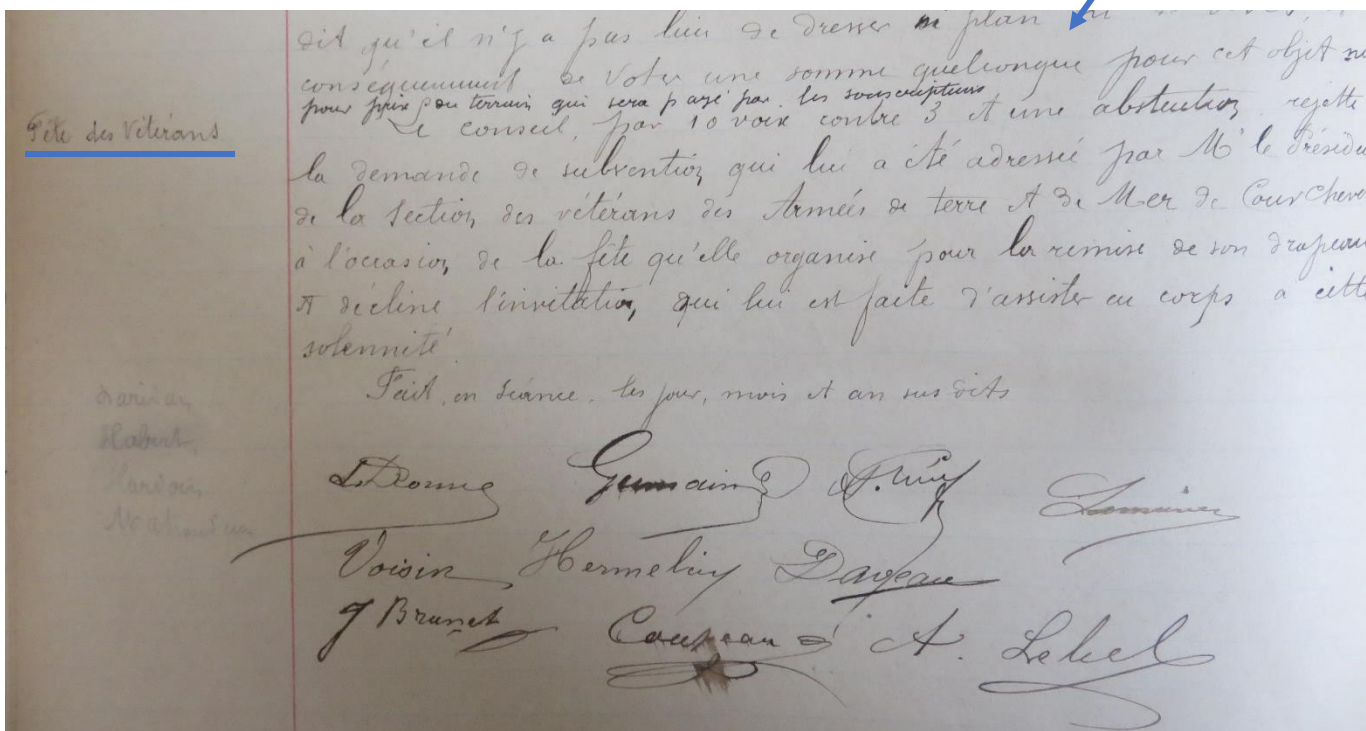 dit qu'il n'y a pas lieu de dresser ni plan ni
conséquemment de voter une somme quelconque pour cet objet ni
pour prix du terrain qui sera payé par les souscripteurs
Fête des Vétérans
Le conseil, par 10 voix contre 3 et une abstention, rejette
la demande de subvention qui lui a été adressée par Mr le Présiden
de la section des vétérans des Armées de terre et de Mer de Cour Chever
à l'occasion de la fête qu'elle organise pour la remise de son drapeau
et décline l'invitation qui lui est faite d'assister en corps a cette
solennité
Fait en séance les jour, mois et an sus dits
Habert
Germain
Voisin Hermelin Daveau
J Brunet Coupeau A. Lebel